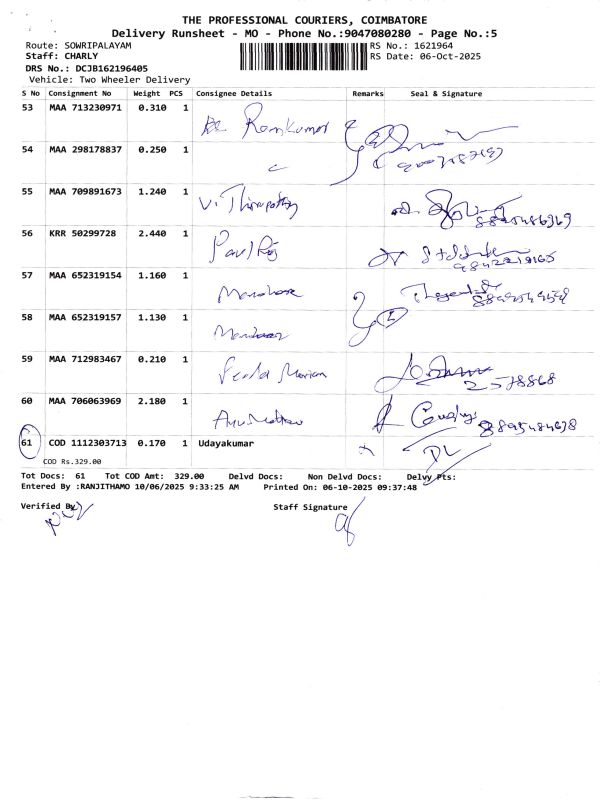 THE PROFESSIONAL COURIERS, COIMBATORE
Delivery Runsheet - MO - Phone No.:9047080280 - Page No.:5
Route: SOWRIPALAYAM
RS No.: 1621964
Staff: CHARLY
RS Date: 06-Oct-2025
DRS No.: DCJB162196405
Vehicle: Two Wheeler Delivery
S No Consignment No Weight PCS Consignee Details Remarks Seal & Signature
53 MAA 713230971 0.310 1 Ramkumar
54 MAA 298178837 0.250 1
55 MAA 709891673 1.240 1 V. Thirupathy
56 KRR 50299728 2.440 1 Paul Raj
57 MAA 652319154 1.160 1
58 MAA 652319157 1.130 1
59 MAA 712983467 0.210 1
60 MAA 706063969 2.180 1
61 COD 1112303713 0.170 1 Udayakumar DL
COD Rs.329.00
Tot Docs: 61 Tot COD Amt: 329.00 Delvd Docs: Non Delvd Docs: Delvy Pts:
Entered By :RANJITHAMO 10/06/2025 9:33:25 AM Printed On: 06-10-2025 09:37:48
Verified By Staff Signature